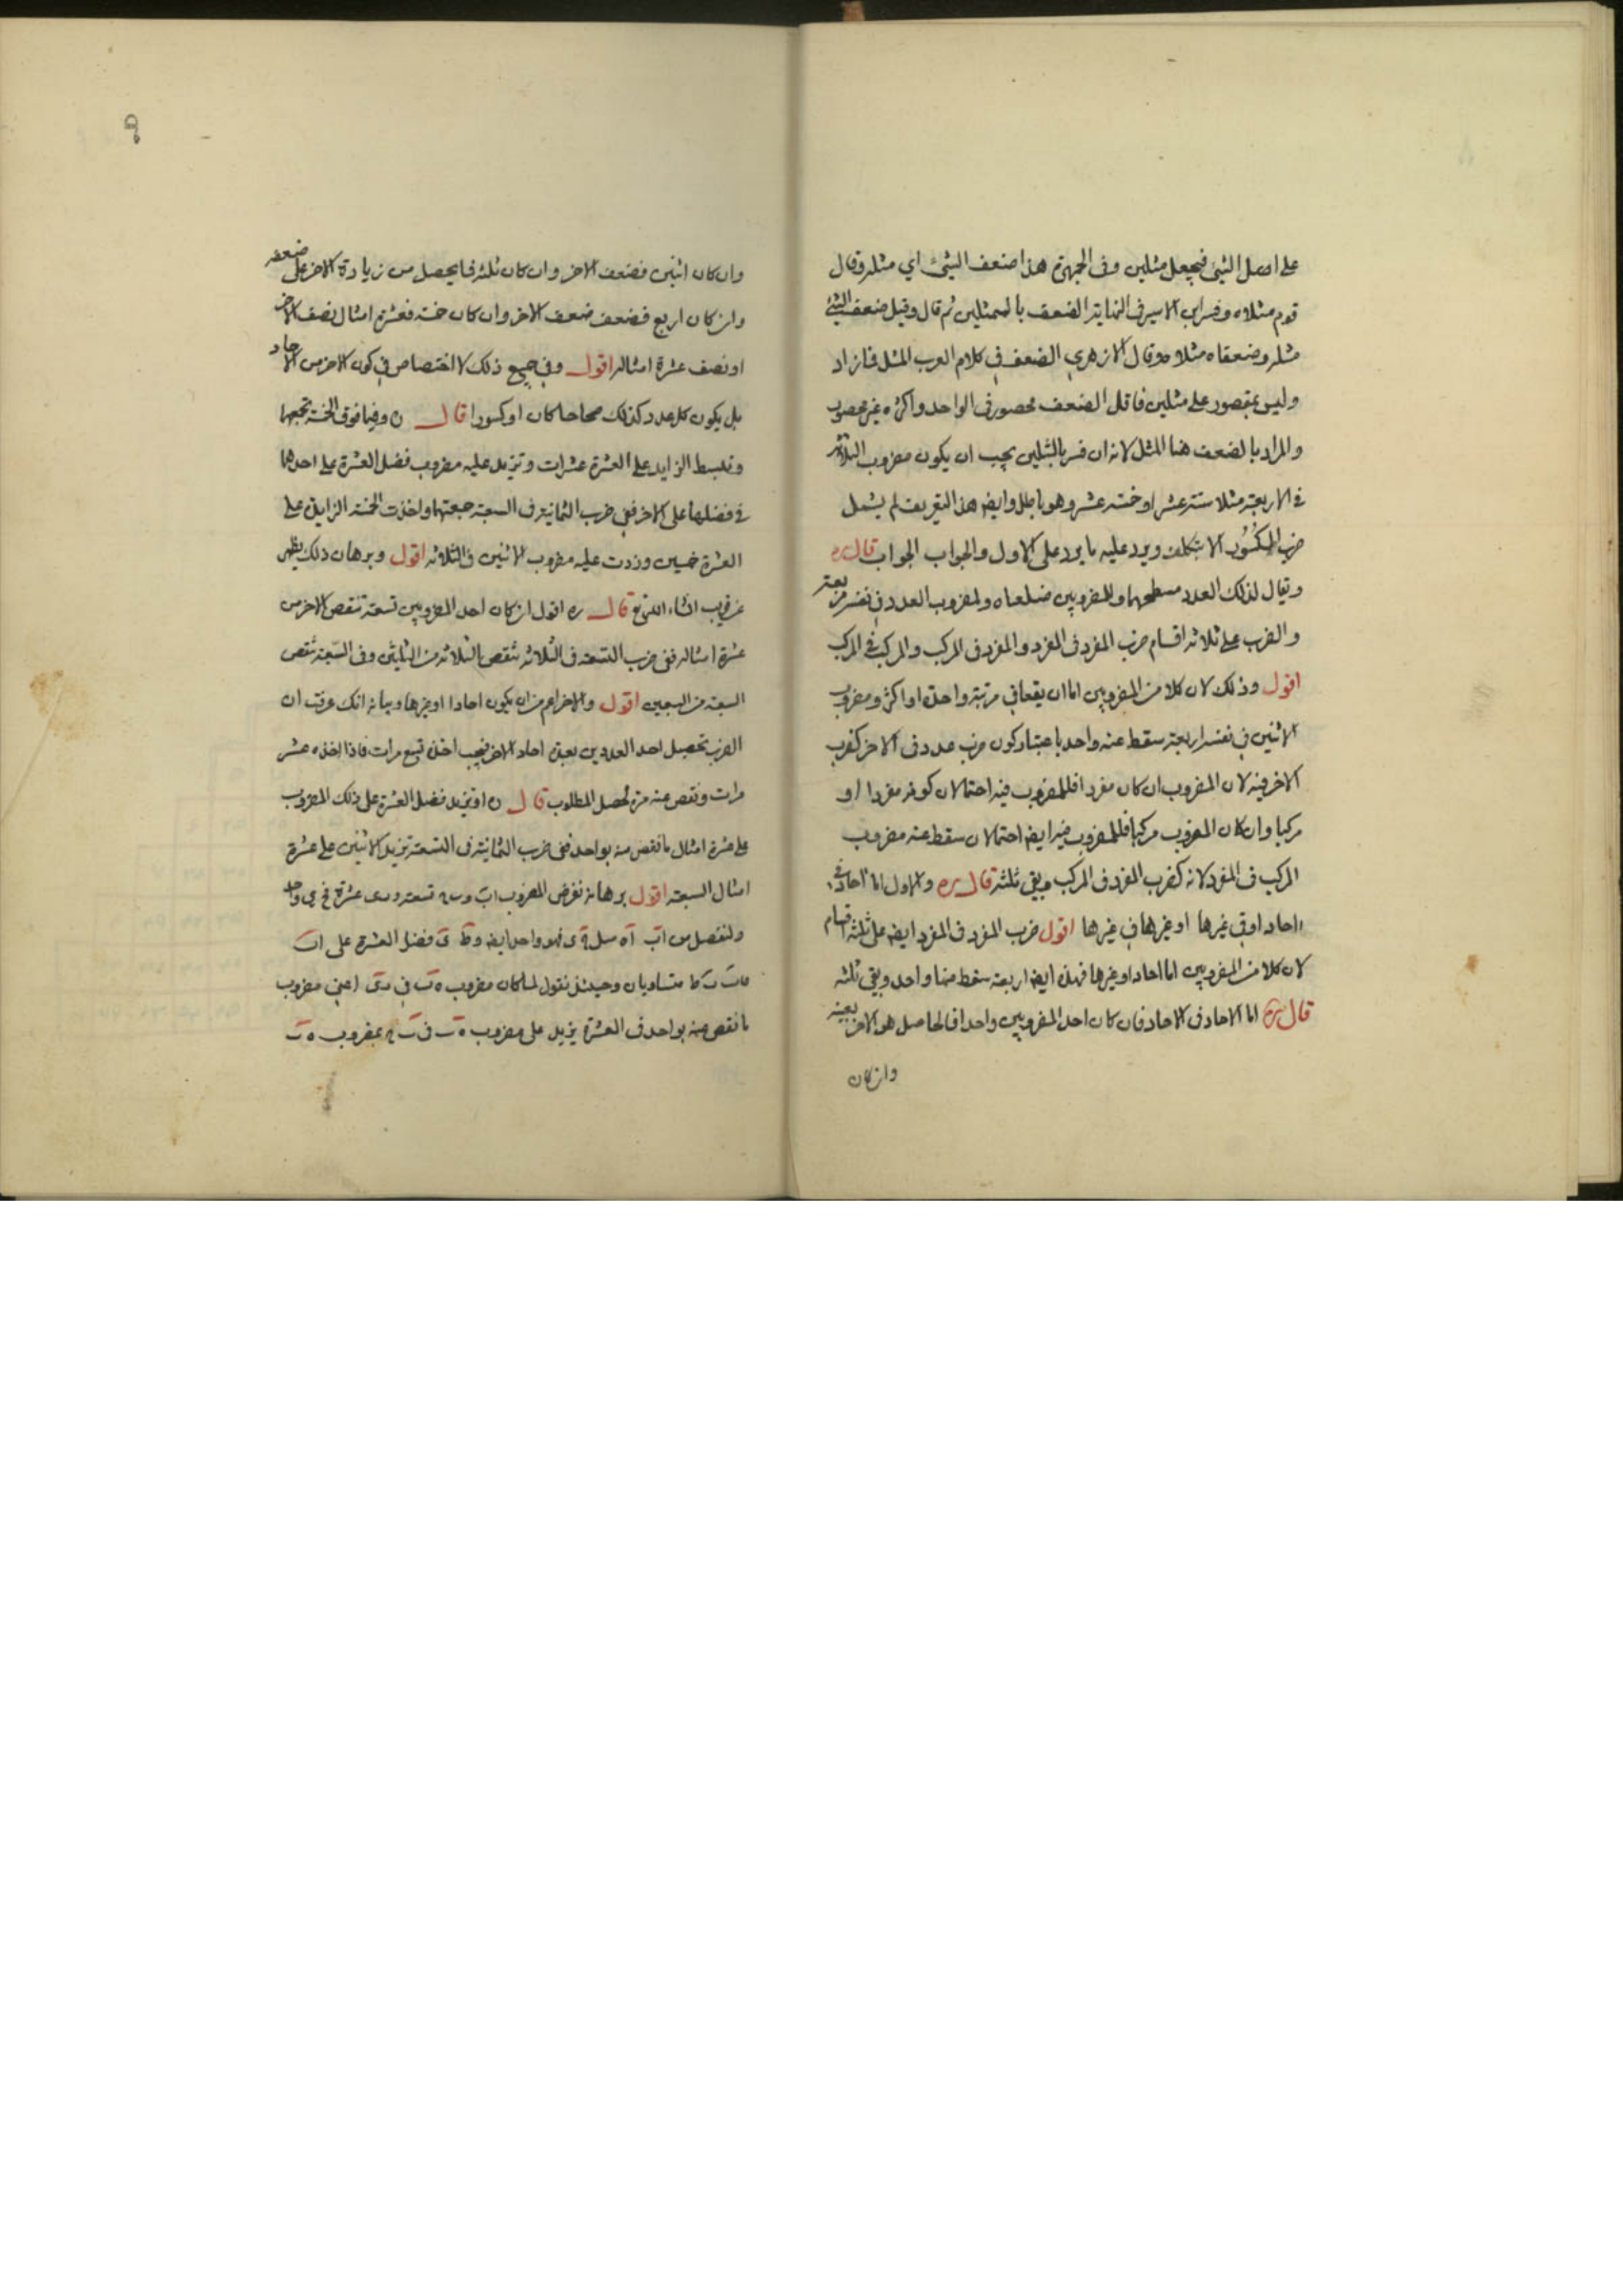 على اصل الشئ فيجعل مثلين وفى الجمهرة هذا ضعف الشئ اي مثله وقال
قوم مثلاه وفسر ابن الاثير فى النهاية الضعف بالمثلين ثم قال وقيل ضعف الشئ
مثله وضعفاه مثلاه وقال الازهري الضعف في كلام العرب المثل فما زاد
وليس بمقصور على مثلين فاقل الضعف محصور فى الواحد واكثره غير محصور
والمراد بالضعف هنا المثل لانه ان فسر بالمثلين يجب ان يكون مضروب الثلاثة
في الاربعة مثلا ستة عشر او خمسة عشر وهو باطل وايضا هذا التعريف لم يشمل
ضرب الكسور الا بتكلف ويرد عليه ما يرد على الاول والجواب الجواب قال ره
ويقال لذلك العدد مسطحهما وللمضروبين ضلعاه ولمضروب العدد في نفسه مربعه
والضرب على ثلاثة اقسام ضرب المفرد فى المفرد والمفرد فى المركب والمركب في المركب
اقول وذلك لان كلا من المضروبين اما ان يقعا في مرتبة واحدة او اكثر ومضروب
الاثنين في نفسه اربعة سقط عنه واحد باعتبار كون ضرب عدد فى الاخر كضرب
الاخر فيه لان المضروب ان كان مفردا فللمضروب فيه احتمالان كونه مفردا او
مركبا وان كان المضروب مركبا فللمضروب فيه ايضا احتمالان سقط عنه مضروب
المركب فى المفرد لانه كضرب المفرد فى المركب وبقى ثلثة قال ره والاول اما احاد في
احاد اوفى غيرها او غيرها في غيرها اقول ضرب المفرد فى المفرد ايضا على ثلثة اقسام
لان كلا من المضروبين اما احاد او غيرها فهذه ايضا اربعة سقط منها واحد وبقي ثلثة
قال ره اما الاحاد فى الاحاد فان كان احد المضروبين واحدا فالحاصل هو الاخر بعينه
وان كان
وان كان اثنين فضعف الاخر وان كان ثلثة فما يحصل من زيادة الاخر على ضعفه
وان كان اربع فضعف ضعف الاخر وان كان خمسة فعشرة امثال نصف الاخر
او نصف عشرة امثاله اقول وفي جميع ذلك لا اختصاص في كون الاخر من الاحاد
بل يكون كل عدد كذلك صحاحا كان او كسورا قال ره وفيما فوق الخمسة تجمعهما
وتبسط الزايد على العشرة عشرات وتزيد عليه مضروب فضل العشرة على احدهما
في فضلها على الاخر ففي ضرب الثمانية فى السبعة جمعتهما واخذت الخمسة الزايدة على
العشرة خمسين وزدت عليه مضروب الاثنين فى الثلاثة اقول وبرهان ذلك يظهر
عن قريب انشاء الله تع قال ره اقول ان كان احد المضروبين تسعة تنقص الاخر من
عشرة امثاله ففى ضرب التسعة فى الثلاثة تنقص الثلاثة من الثلثين وفى السبعة تنقص
السبعة من السبعين اقول والاخر اعم من ان يكون احادا او غيرها وبيانه انك عرفت ان
الضرب تحصيل احد العددين بعدة احاد الاخر فيجب اخذه تسع مرات فاذا اخذه عشر
مرات ونقص منه مرة لحصل المطلوب قال ره او تزيد فضل العشرة على ذلك المضروب
على عشرة امثال ما نقص منه بواحد ففى ضرب الثمانية فى التسعة تزيد الاثنين على عشرة
امثال السبعة اقول برهانه نفرض المضروب اب تسعة عشرة واحد
ولنفصل من اب اه واحد ايضا فضل العشرة على اب
متساويان وحينئذ نقول لما كان مضروب ه ب في اعني مضروب
ما نقص منه بواحد فى العشرة يزيد على مضروب ه ب فى بمضروب ه ب